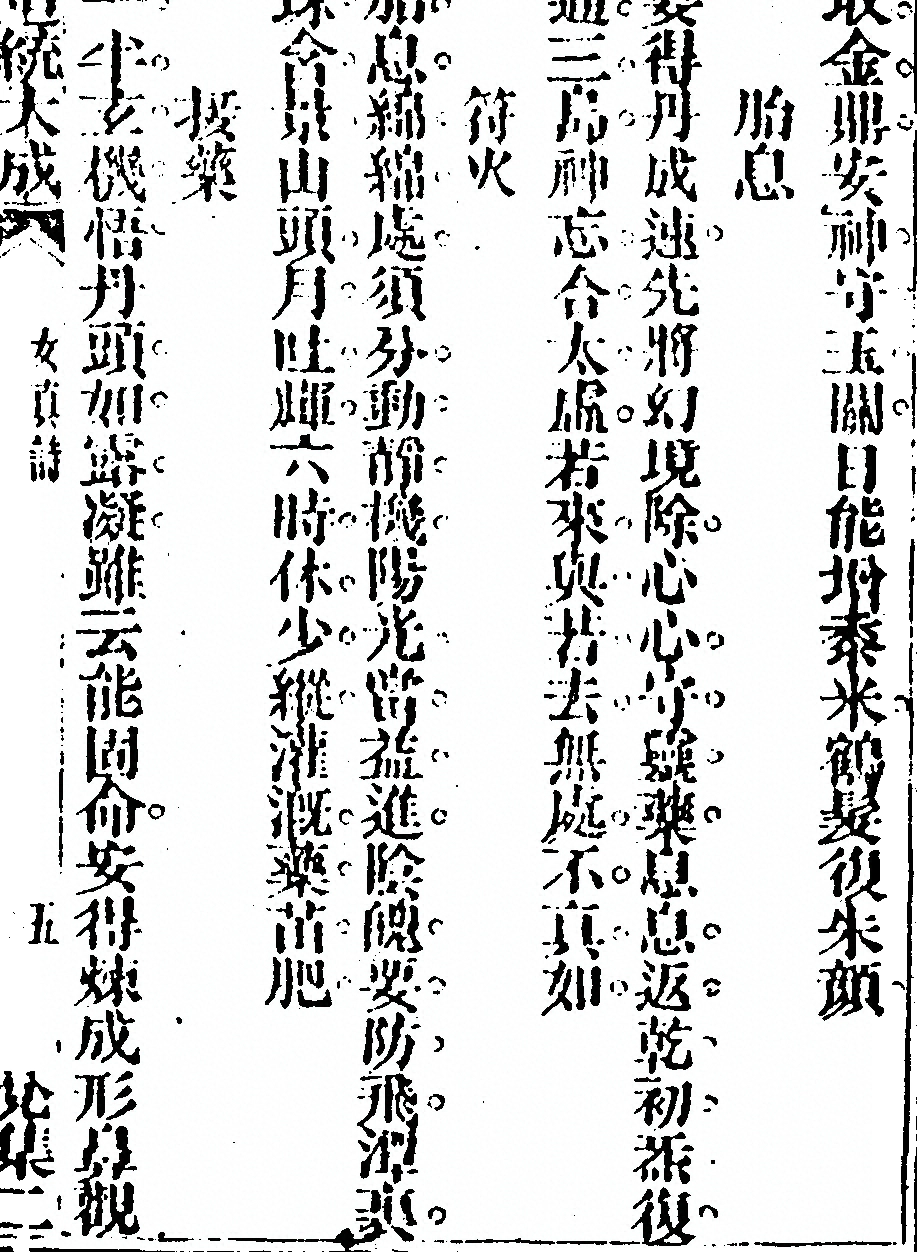 金鼎安神守玉關日能增黍米鶴髮復朱顏
胎息
要得丹成速先將幻境除心心守靈藥息息返乾初炁復
通三島神忘合太虛若來與若去無處不真如
符火
胎息綿綿處須分動靜機陽光當益進陰魄要防飛潭裏
珠含景山頭月吐輝六時休少縱灌溉藥苗肥
接藥
一半玄機悟丹頭如露凝雖云能固命安得煉成形鼻觀
統大成
女真詩
五
集二